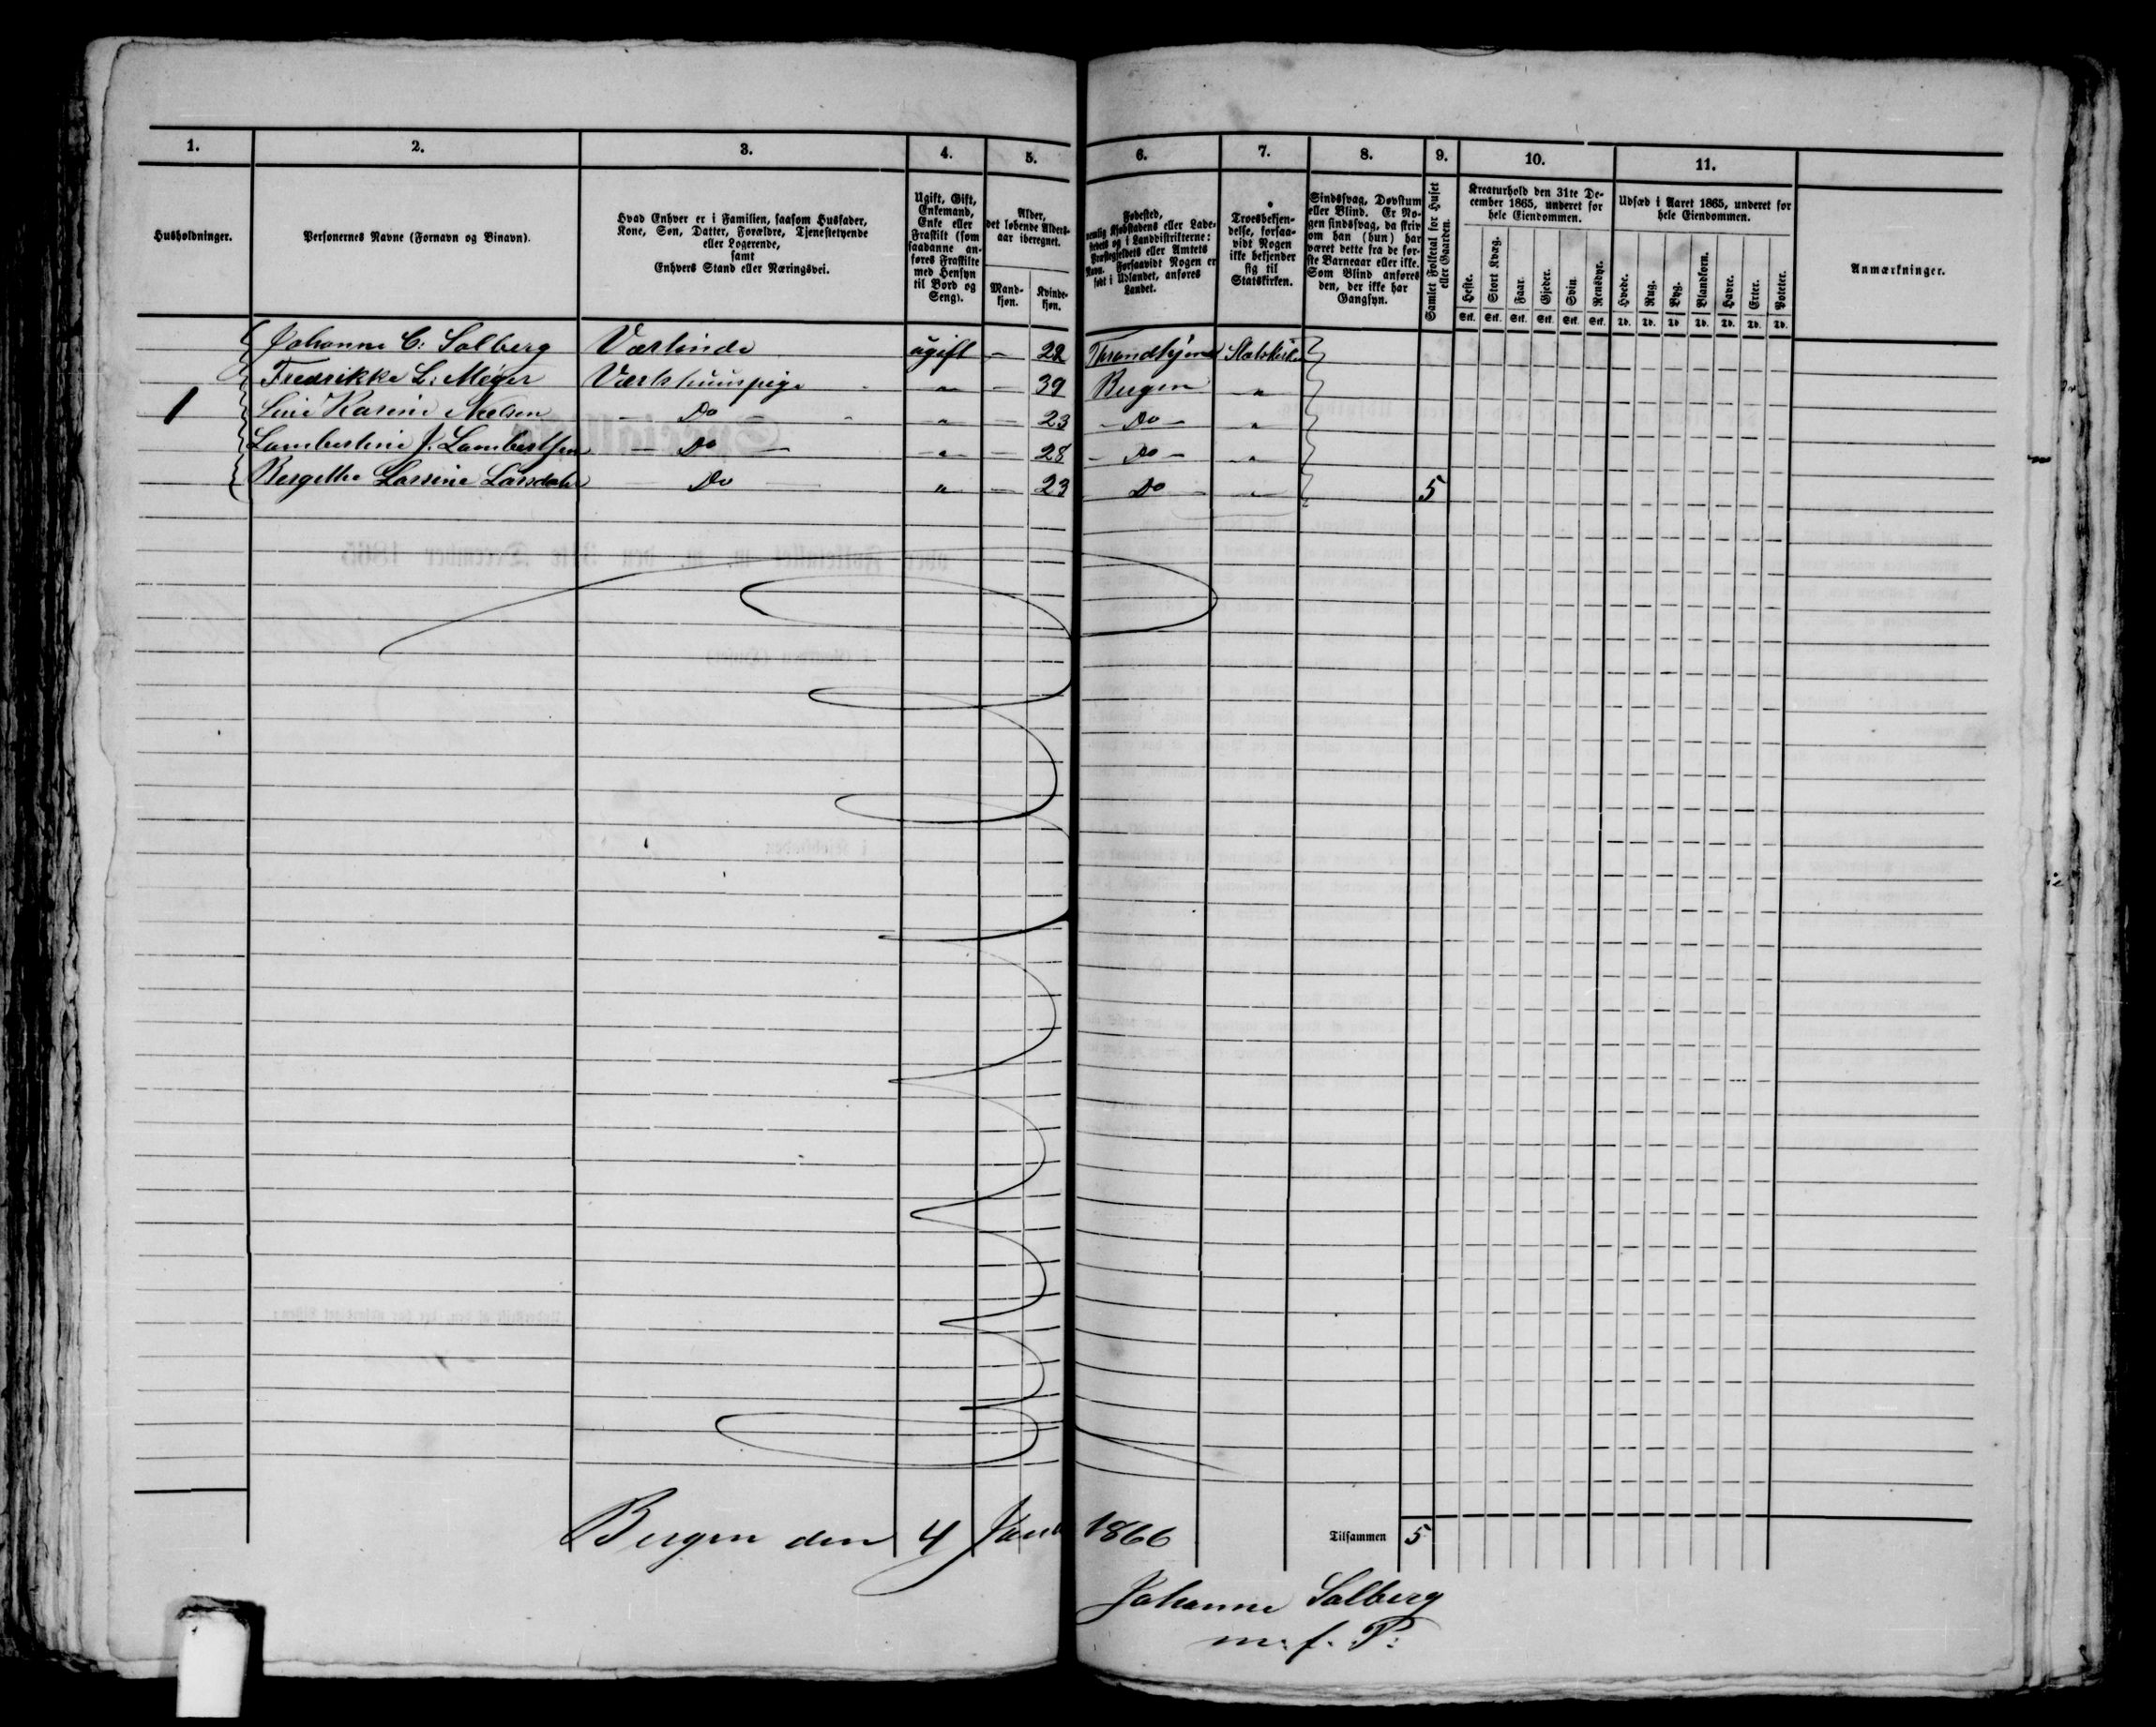 1. 2. 3. 4. 5. 6. 7. 8. 9. 10. 11.
Husholdninger.
Personernes Navne (Fornavn og Binavn).
Hvad Enhver er i Familien, saasom Husfader,
Kone, Søn, Datter, Forældre, Tjenestetyende
eller Logerende,
samt
Enhvers Stand eller Næringsvei.
Ugift, Gift,
Enkemand,
Enke eller
Fraskilt (som
saadanne an-
føres Fraskilte
med Hensyn
til Bord og
Seng).
Alder,
det løbende Alders-
aar iberegnet.
Mand-
kjøn.
Kvinde-
kjøn.
Fødested,
nemlig Kjøbstadens eller Lade-
stedets og i Landdistrikterne:
Præstegjeldets eller Amtets
Navn. Forsaavidt Nogen er
født i Udlandet, anføres
Landet.
Troesbekjen-
delse, forsaa-
vidt Nogen
ikke bekjender
sig til
Statskirken.
Sindssvag, Døvstum
eller Blind. Er No-
gen sindssvag, da skriv
om han (hun) har
været dette fra de før-
ste Barneaar eller ikke.
Som Blind anføres
den, der ikke har
Gangsyn.
Samlet Folketal for Huset
eller Gaarden.
Kreaturhold den 31te De-
cember 1865, underet for
hele Eiendommen.
Heste. Stort Kvæg. Faar. Gjeder. Svin. Rensdyr.
Stk. Stk. Stk. Stk. Stk. Stk.
Udsæd i Aaret 1865, underet for
hele Eiendommen.
Hvede. Rug. Byg. Blandkorn. Havre. Erter. Poteter.
Td. Td. Td. Td. Td. Td. Td.
Anmærkninger.
Johanne C: Solberg Værtinde ugift — 22 Throndhjem Statskirke
Fredrikke L: Meyer Værtshuuspige " — 39 Bergen "
1 Karine Nielsen — Do — " — 23 — Do — "
Lambertine J. Lambertsen — Do — " — 28 — Do — "
Bergethe Lassine Larsdatter — Do — " — 23 Do — " 5
Bergen den 4 Janr 1866
Tilsammen 5
Johanne Solberg
m. f. P: